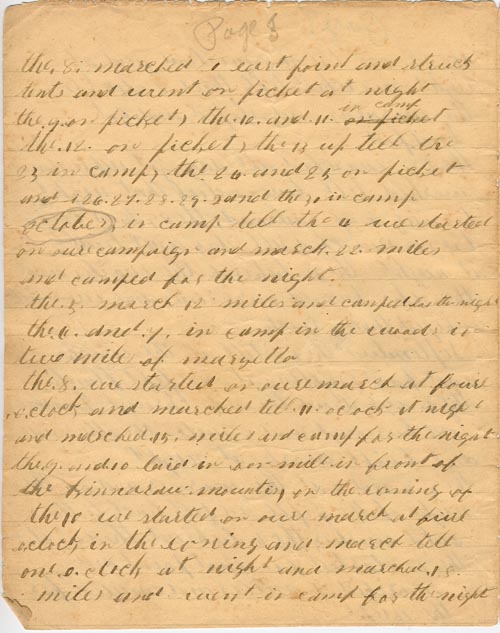 Page 3
the. 8. marched to east point and struck
tents and went on picket at night
the 9. on picket, the. 10. and. 11. in camp on picket
the. 12. on picket, the 13 up tell the
23 in camp, the. 24. and 25 on picket
and 26. 27. 28. 29. and the 30 in camp
October, in camp tell the 4 we started
on oure campaign and march. 22. miles
and camped for the night.
the 5. march 12 miles and camped for the night
the 6. and. 7. in camp in the woods in
two mile of maryetta
the. 8. we started on oure march at foure
o.clock and marched tel. 11. oclock at night
and marched. 15. miles and camp for the night
the 9. and 10 laid in on mile in front of
the mounten, on the evning of
the 10 we started on oure march at
oclock in the evning and march tell
one. o. clock at night and marched. 15
miles and went in camp for the night